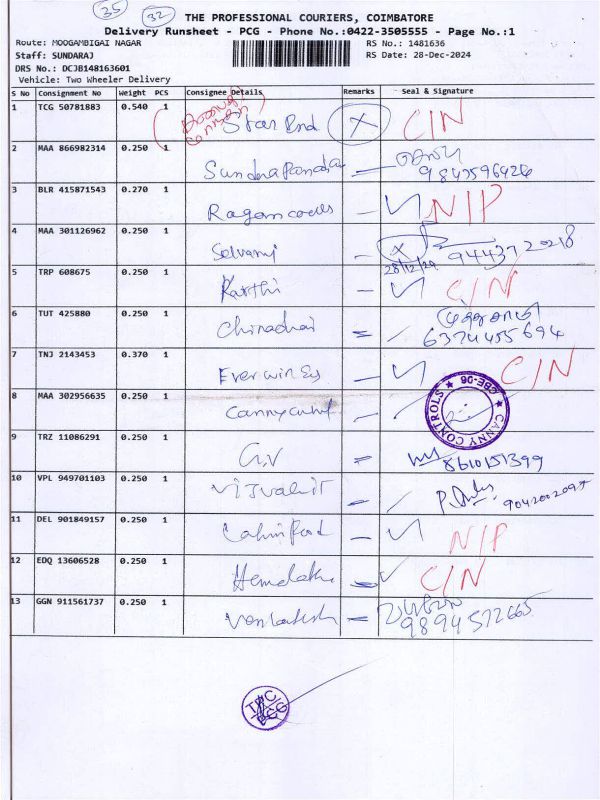 35 32
THE PROFESSIONAL COURIERS, COIMBATORE
Delivery Runsheet - PCG - Phone No.:0422-3505555 - Page No.:1
Route: MOOGAMBIGAI NAGAR RS No.: 1481636
Staff: SUNDARAJ RS Date: 28-Dec-2024
DRS No.: DCJB148163601
Vehicle: Two Wheeler Delivery
S No Consignment No Weight PCS Consignee Details Remarks Seal & Signature
1 TCG 50781883 0.540 1 Star Bnd X C/N
2 MAA 866982314 0.250 1 9843596426
3 BLR 415871543 0.270 1 N/P
4 MAA 301126962 0.250 1 Selvamj X 28/12/24 944372018
5 TRP 608675 0.250 1 Karthi C/N
6 TUT 425880 0.250 1 Chinadhai 6374455694
7 TNJ 2143453 0.370 1 C/N
8 MAA 302956635 0.250 1 CANNY CONTROLS CBE-06
9 TRZ 11086291 0.250 1 G.V 8610151399
10 VPL 949701103 0.250 1 9042002095
11 DEL 901849157 0.250 1 N/P
12 EDQ 13606528 0.250 1 C/N
13 GGN 911561737 0.250 1 Venkatesh 9894572665